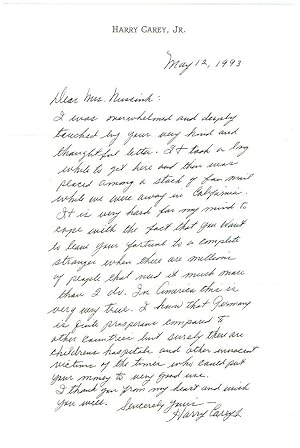 HARRY CAREY, JR.
May 12, 1993
Dear Mrs.
I was overwhelmed and deeply
touched by your very kind and
thoughtful letter. It took a long
while to get here and then was
placed among a stack of fan mail
while we were away in California.
It is very hard for my mind to
cope with the fact that you want
to leave your fortune to a complete
stranger when there are millions
of people that need it much more
than I do. In America this is
very very true. I know that Germany
is quite prosperous compared to
other countries but surely there are
childrens hospitals and other innocent
victims of the times who could put
your money to very good use.
I thank you from my heart and wish
you well. Sincerely yours
Harry Carey Jr.